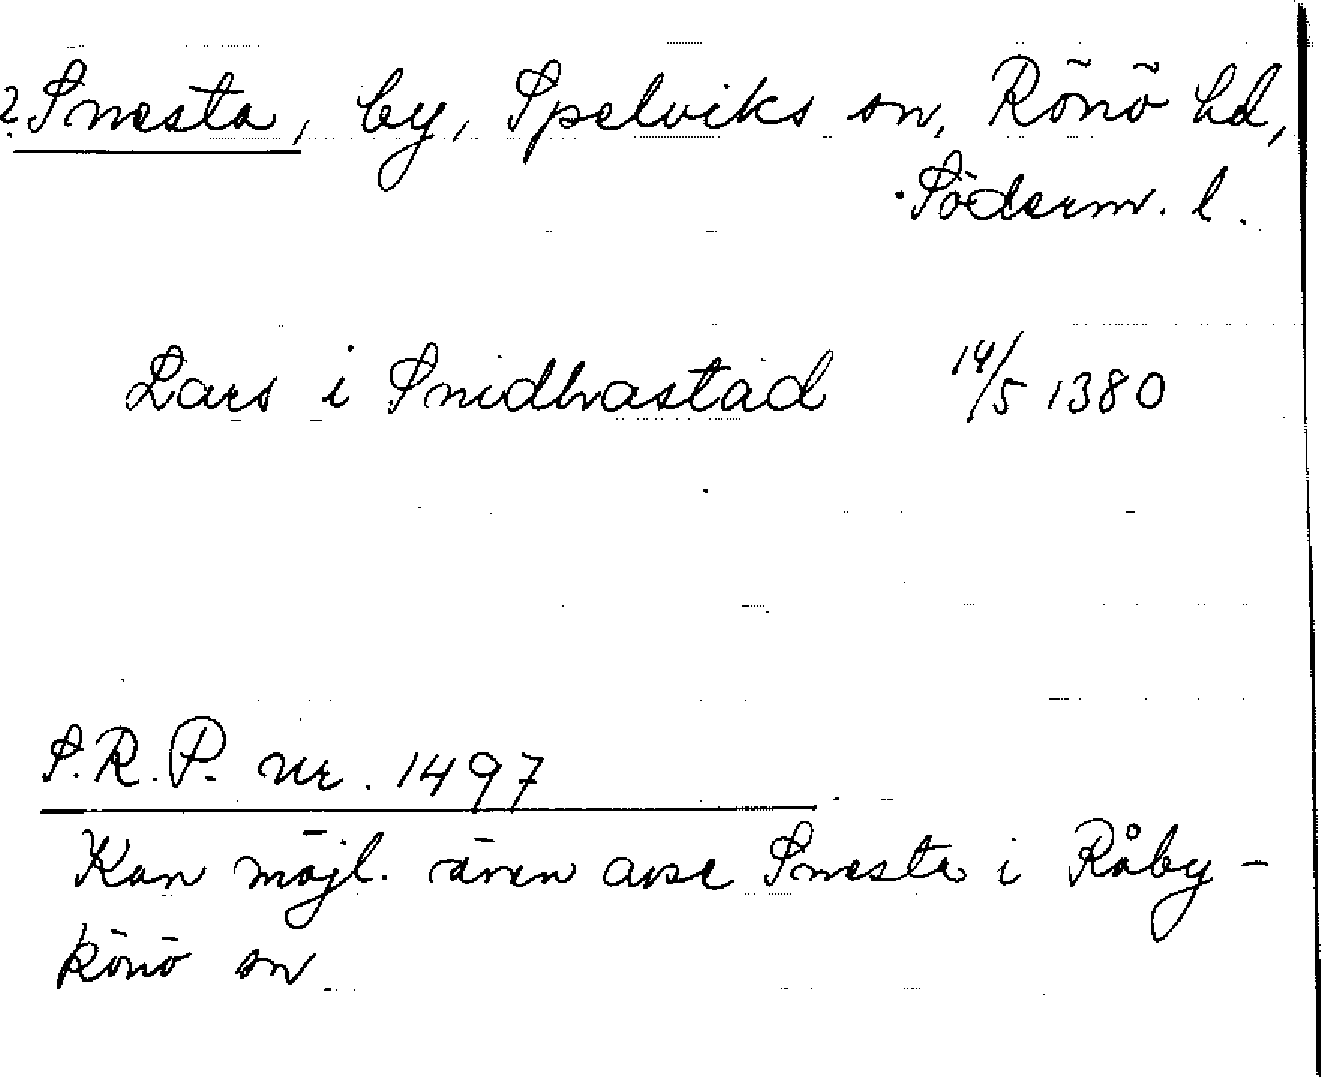 ? Snesta, by, Spelviks sn, Rönö hd,
Söderm. l.
Lars i Snidhrastad 14/5 1380
S.R.P. nr. 1497
Kan möjl. även avse Snesta i Råby-
Rönö sn